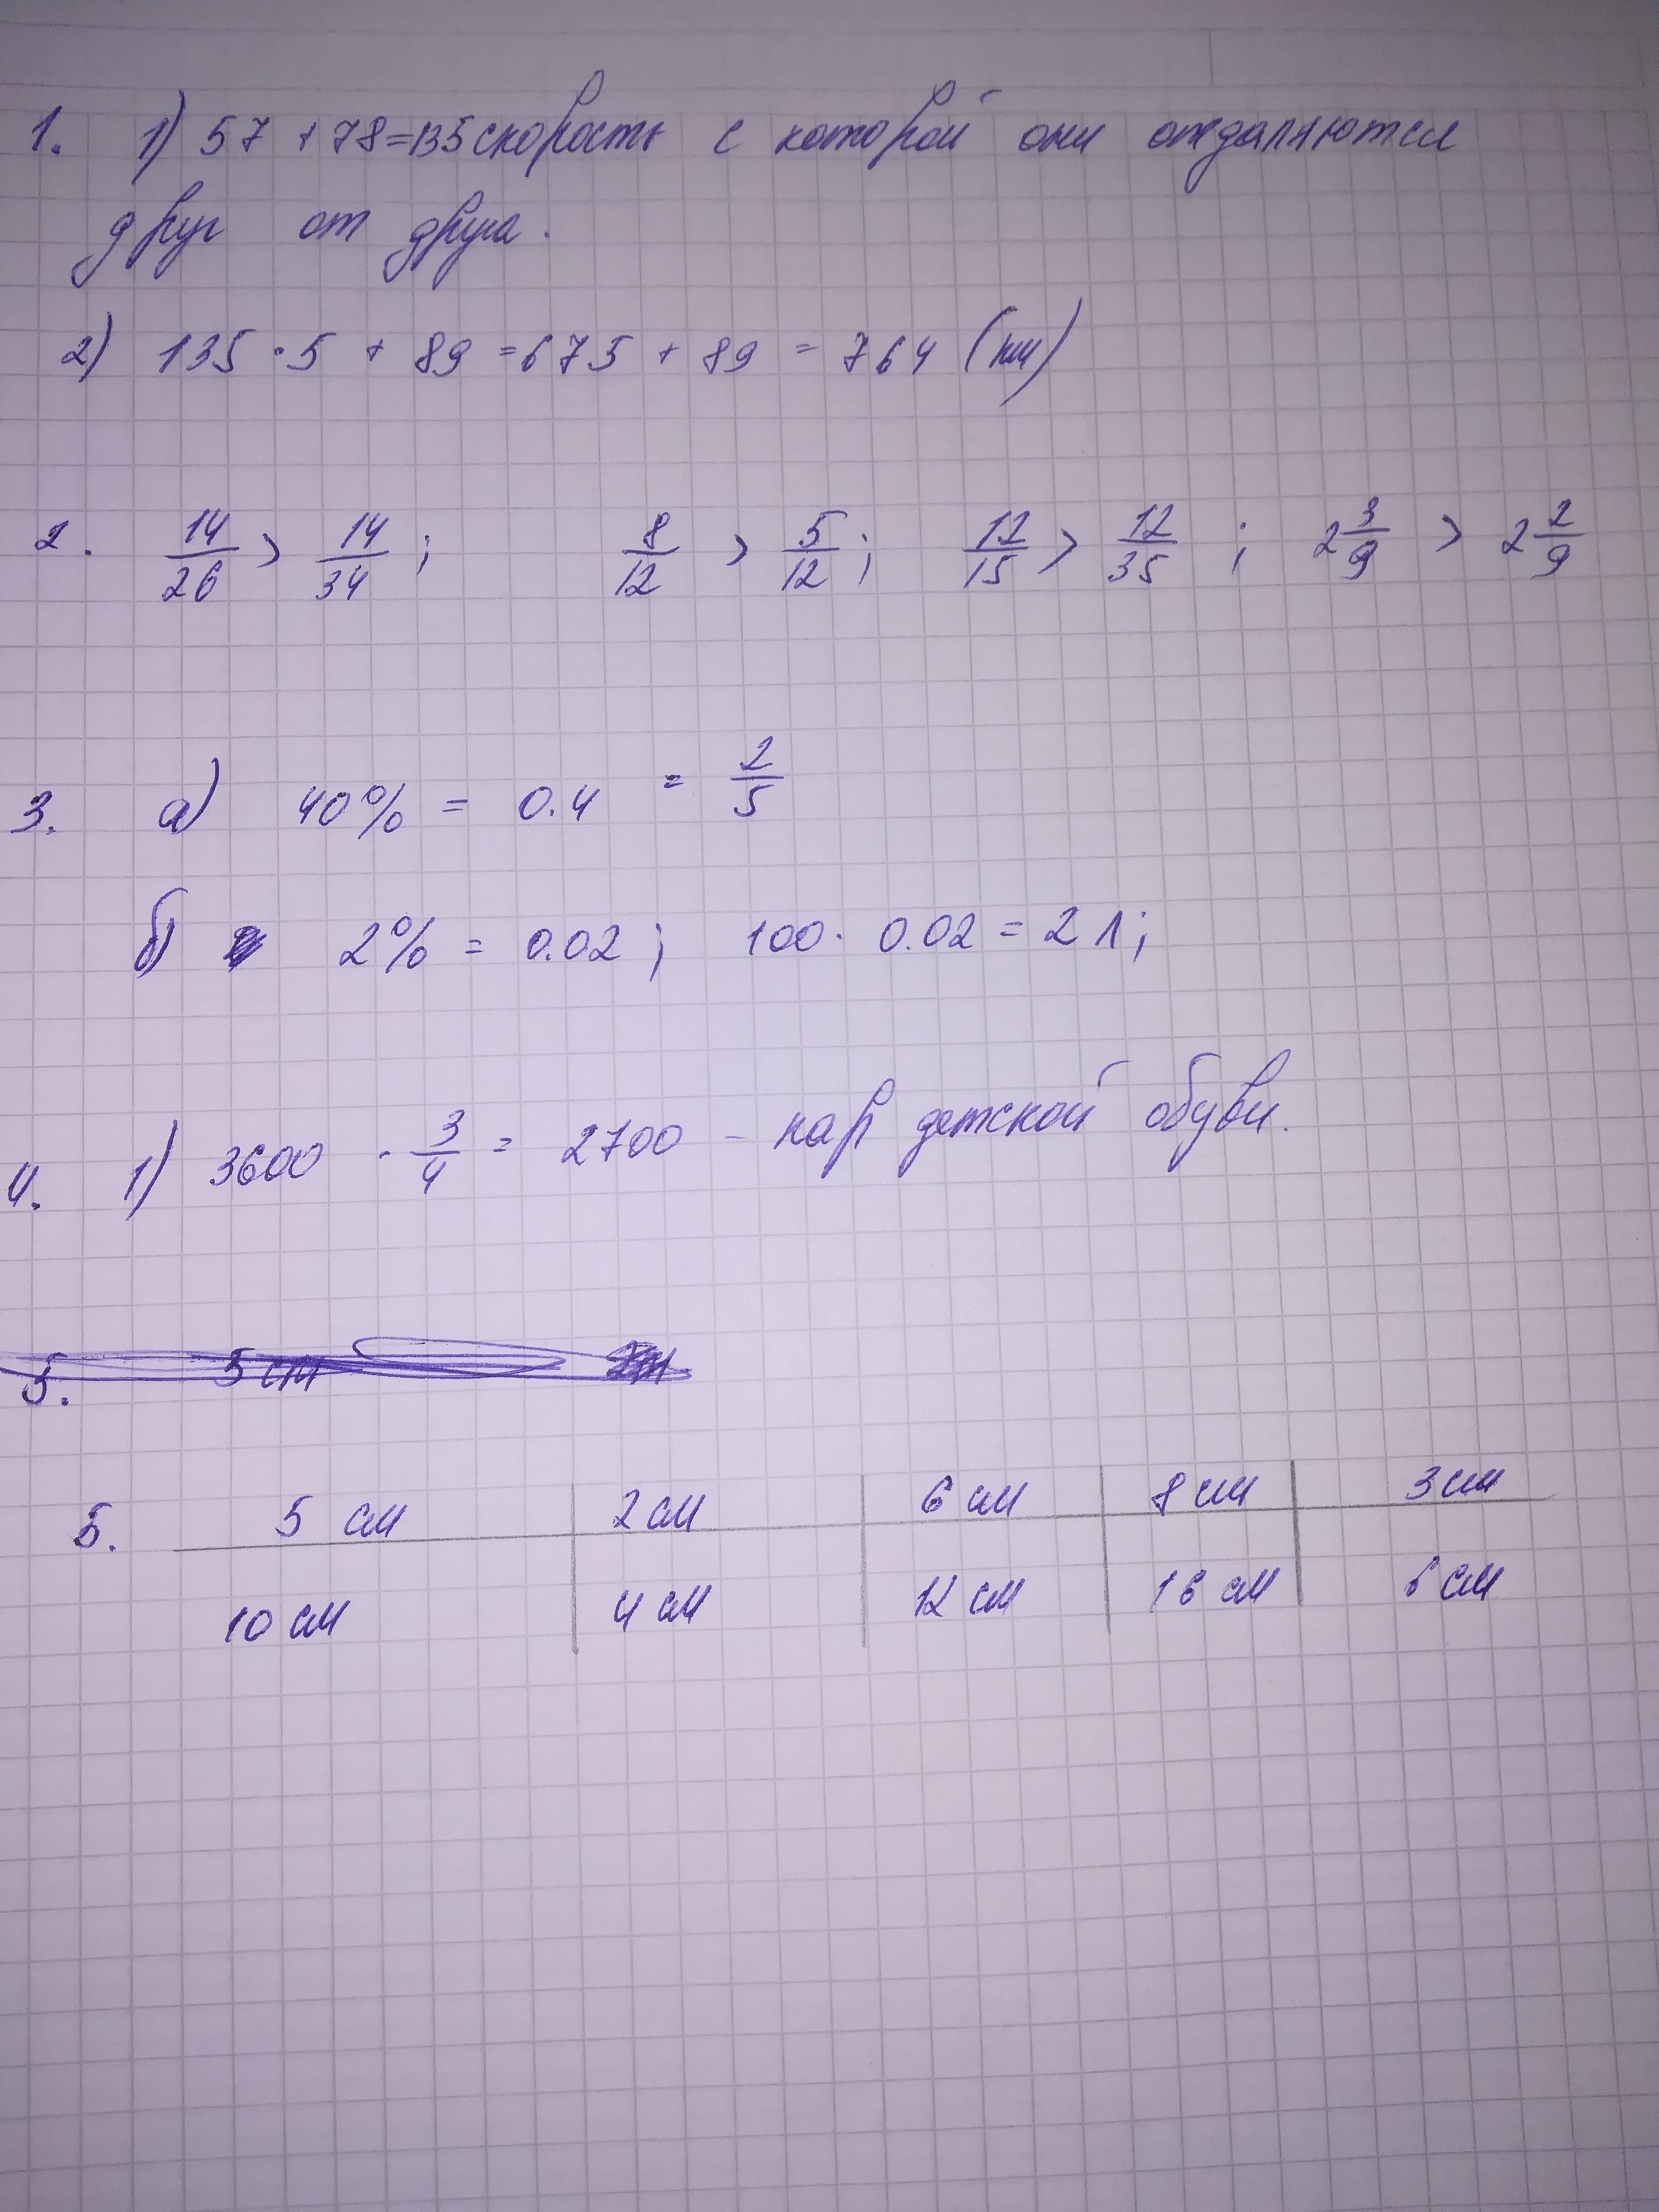 1. 1) 57 + 78 = 135 скорость с которой они отдаляются
друг от друга.
2) 135 · 5 + 89 = 675 + 89 = 764 (км)
2. 14/26 > 14/34 ; 8/12 > 5/12 ; 12/15 > 12/35 ; 2 3/9 > 2 2/9
3. а) 40% = 0.4 = 2/5
б) 2% = 0.02 ; 100 · 0.02 = 2 л;
4. 1) 3600 · 3/4 = 2700 - пар детской обуви.
5. 5 см
5. 5 см 2 см 6 см 8 см 3 см
10 см 4 см 12 см 16 см 6 см